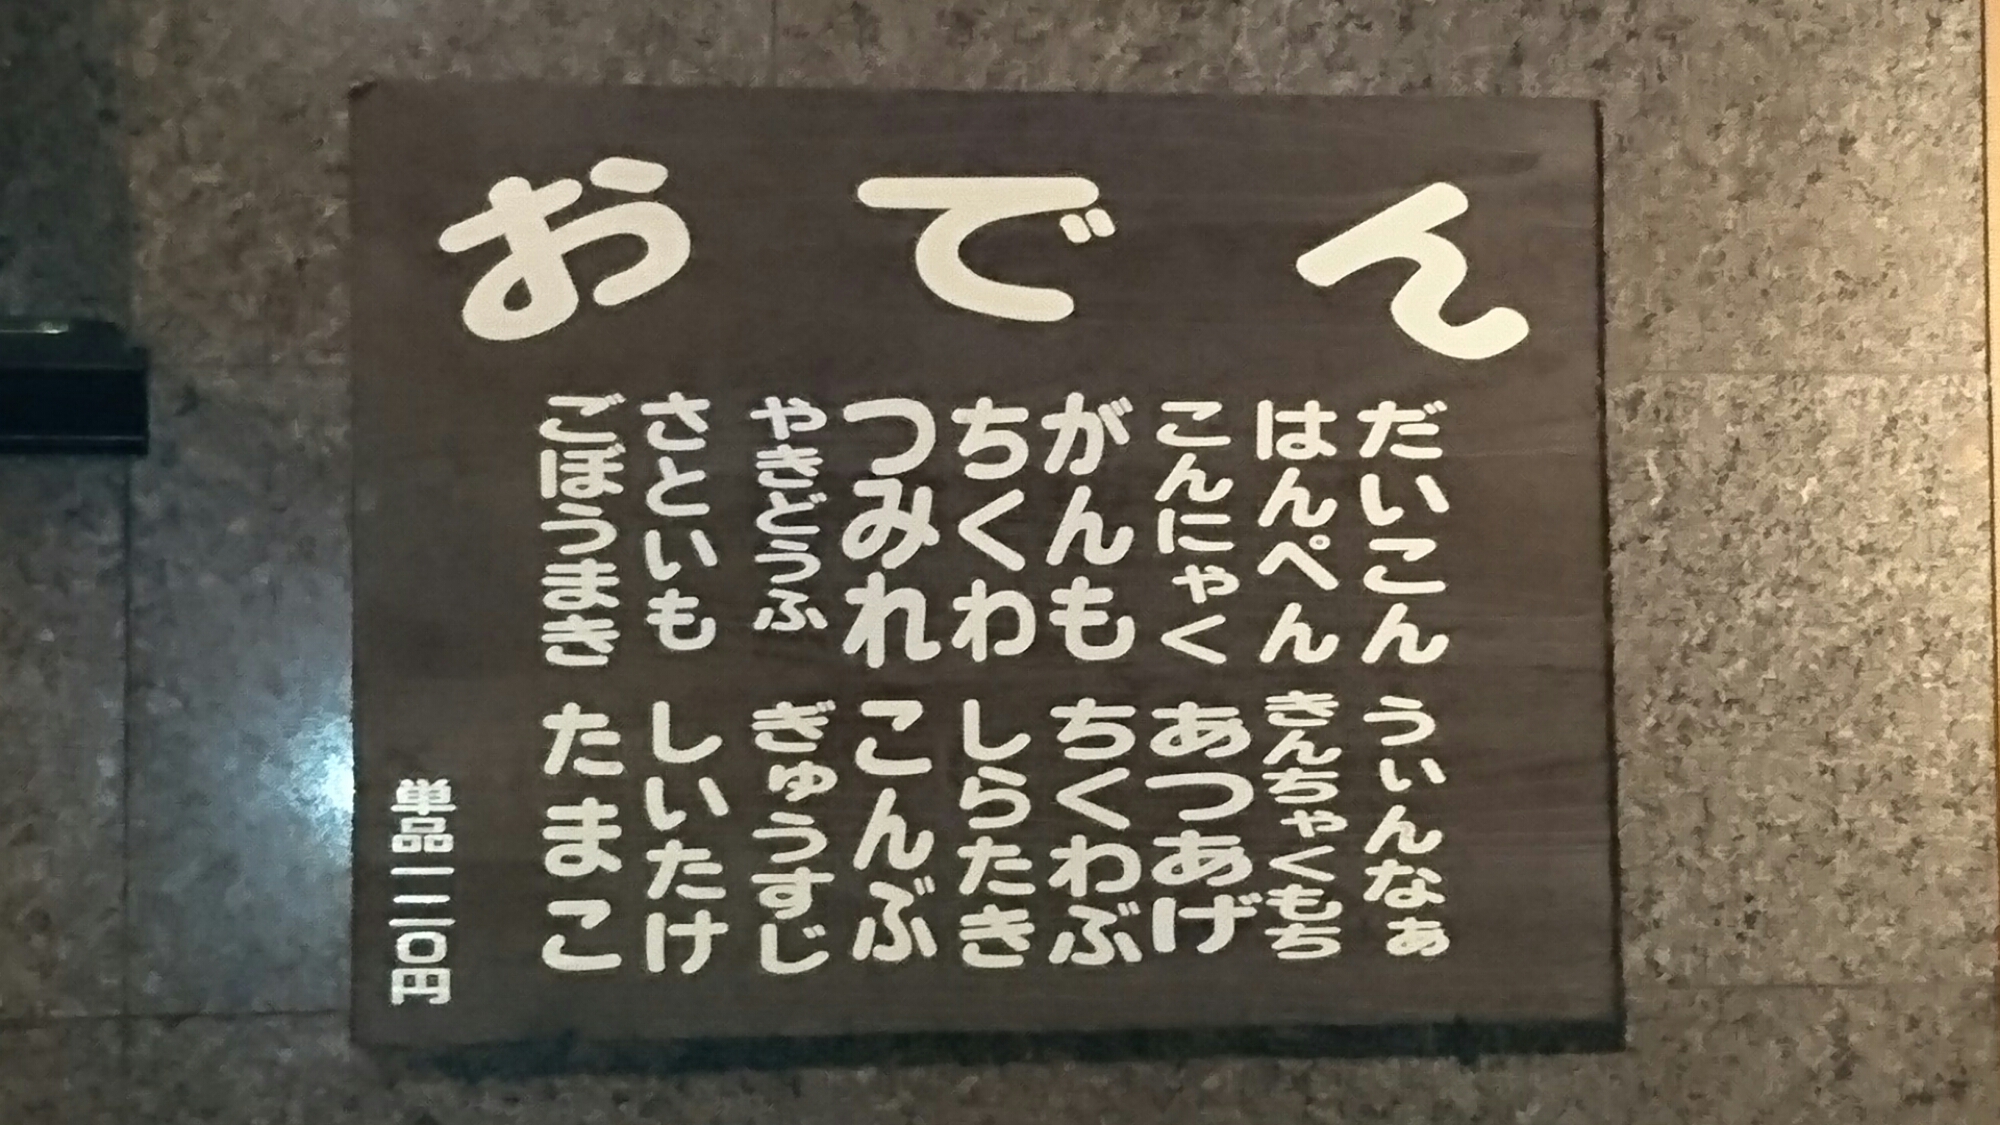 おでん
だいこん
うぃんなぁ
はんぺん
きんちゃくもち
こんにゃく
あつあげ
がんも
ちくわぶ
ちくわ
しらたき
つみれ
こんぶ
やきどうふ
ぎゅうすじ
さといも
しいたけ
ごぼうまき
たまこ
単品一二〇円